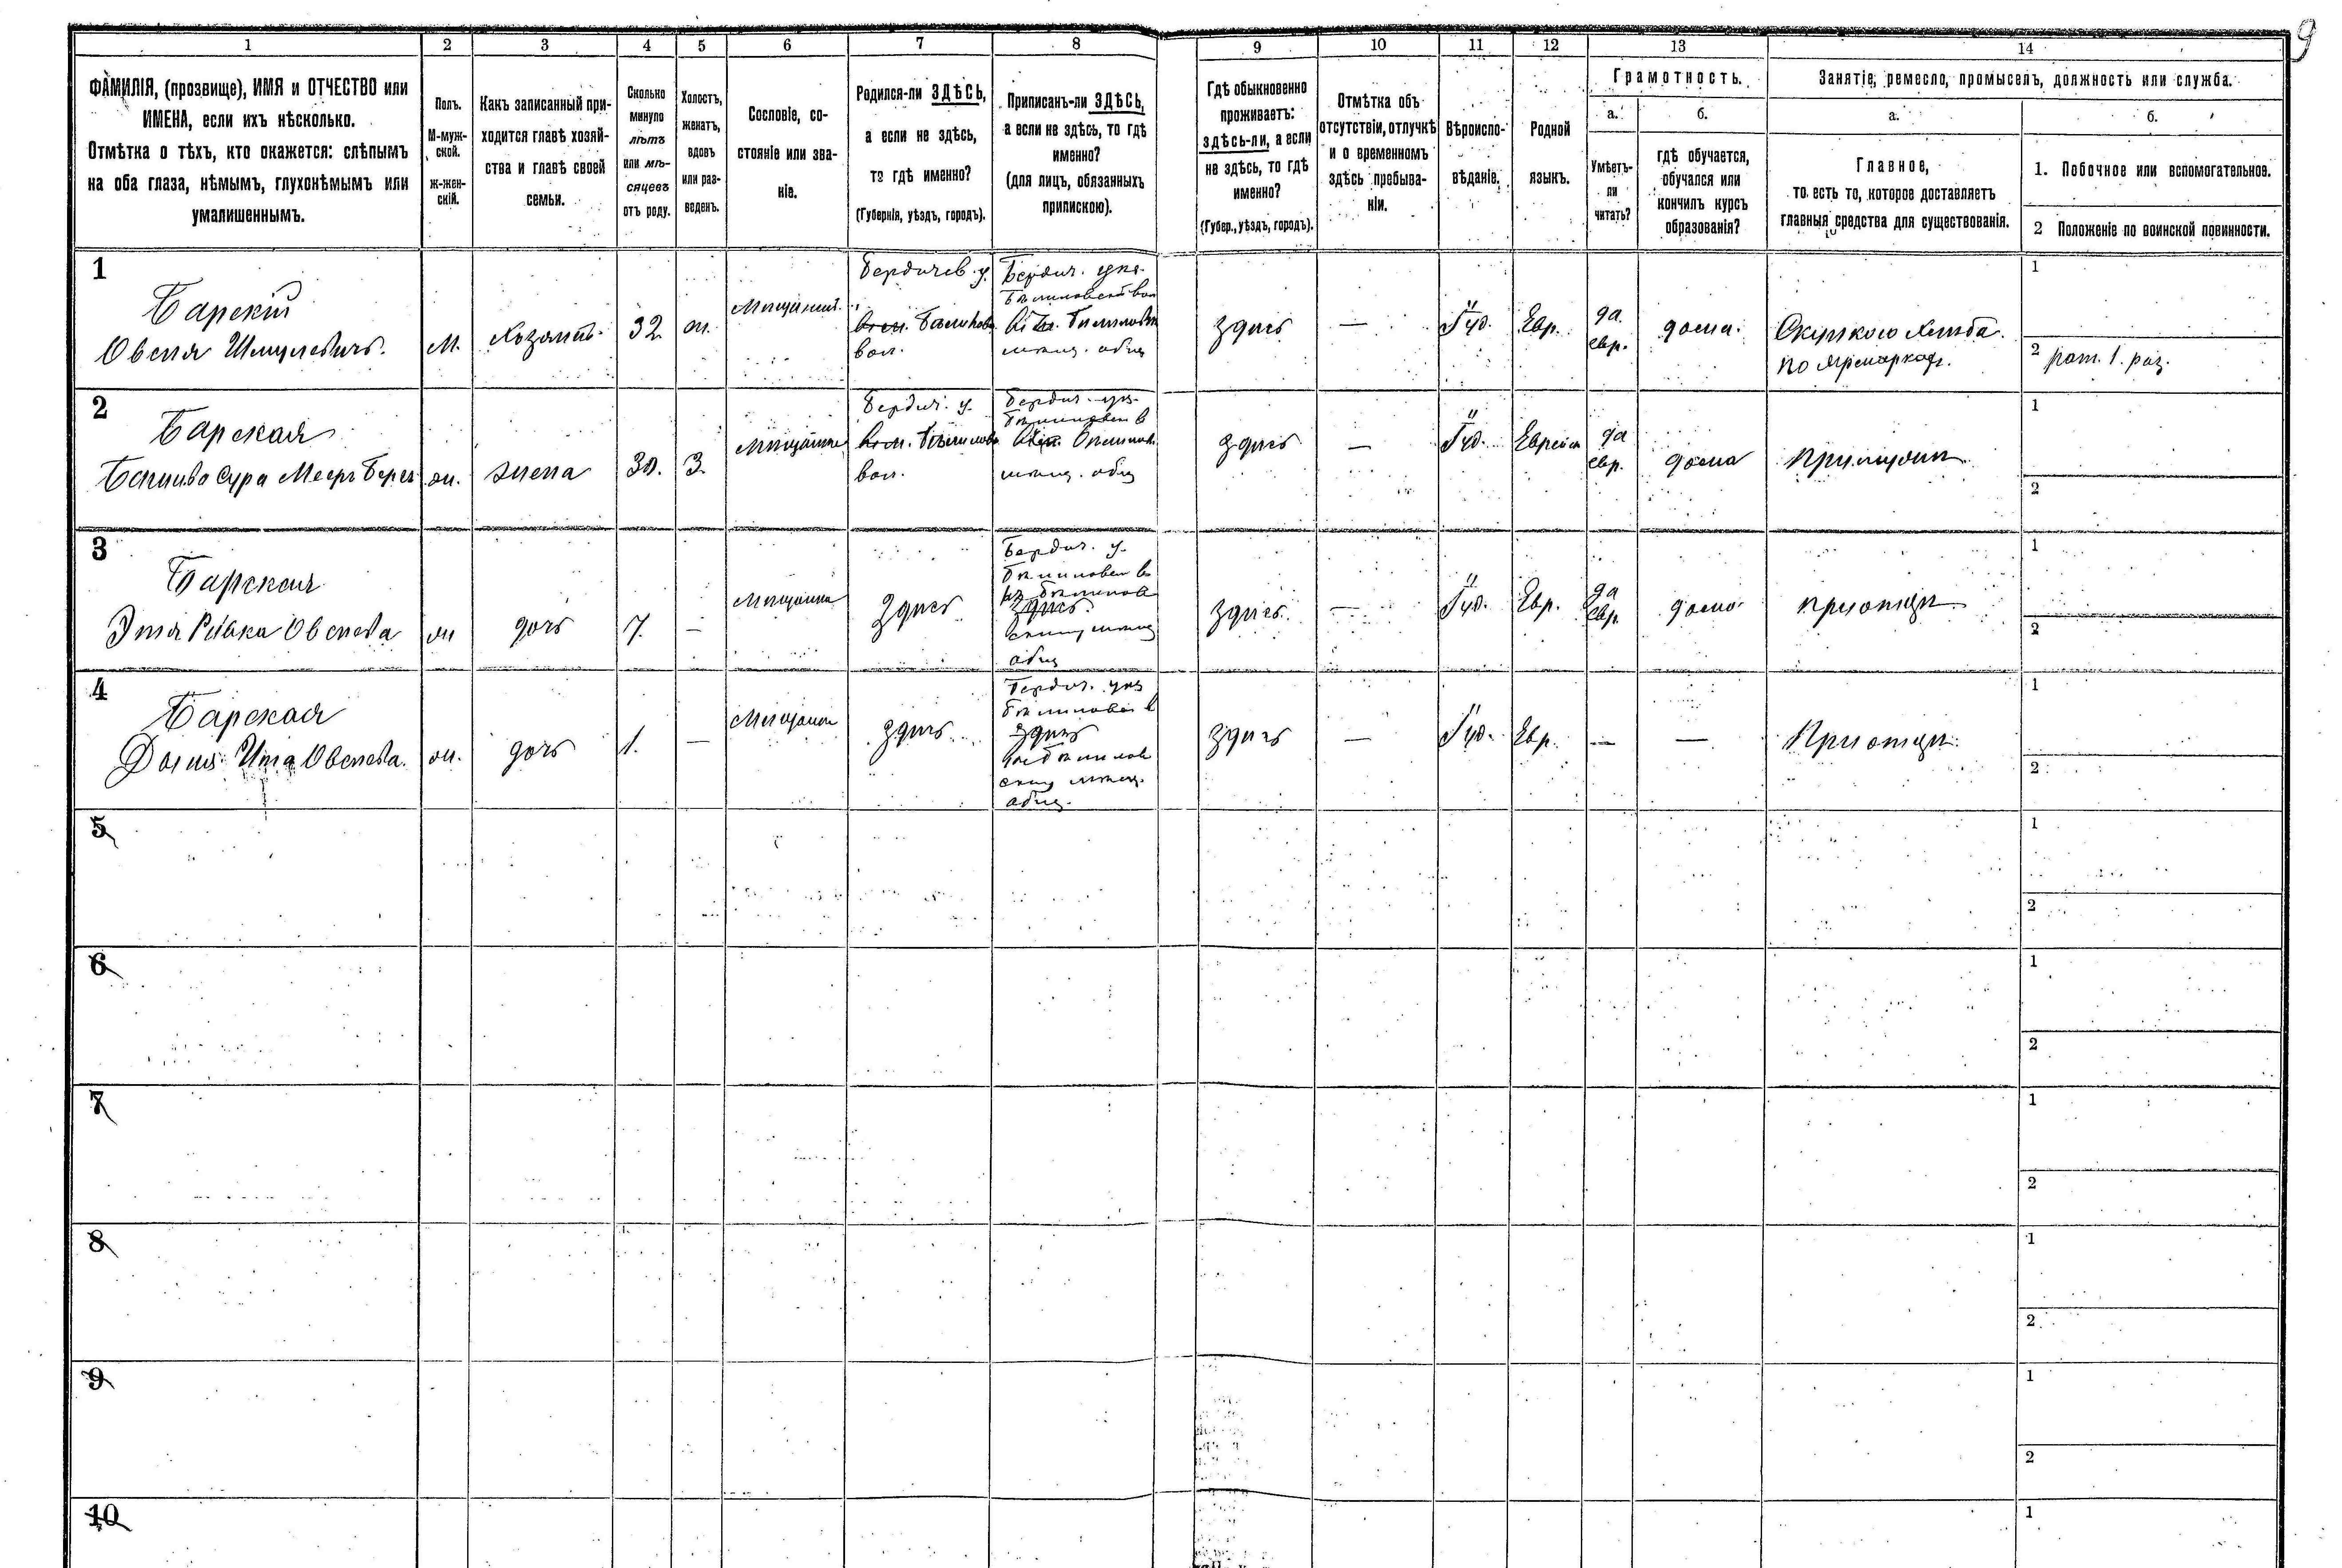 9
1 2 3 4 5 6 7 8 9 10 11 12 13 14
ФАМИЛІЯ, (прозвище), ИМЯ и ОТЧЕСТВО или
ИМЕНА, если ихъ нѣсколько.
Отмѣтка о тѣхъ, кто окажется: слѣпымъ
на оба глаза, нѣмымъ, глухонѣмымъ или
умалишеннымъ.
Полъ.
М-муж-
ской.
ж-жен-
скій.
Какъ записанный при-
ходится главѣ хозяй-
ства и главѣ своей
семьи.
Сколько
минуло
лѣтъ
или мѣ-
сяцевъ
отъ роду.
Холостъ,
женатъ,
вдовъ
или раз-
веденъ.
Сословіе, со-
стояніе или зва-
ніе.
Родился-ли ЗДѢСЬ,
а если не здѣсь,
то гдѣ именно?
(Губернія, уѣздъ, городъ).
Приписанъ-ли ЗДѢСЬ,
а если не здѣсь, то гдѣ
именно?
(для лицъ, обязанныхъ
припискою).
Гдѣ обыкновенно
проживаетъ:
здѣсь-ли, а если
не здѣсь, то гдѣ
именно?
(Губер., уѣздъ, городъ).
Отмѣтка объ
отсутствіи, отлучкѣ
и о временномъ
здѣсь пребыва-
ніи.
Вѣроиспо-
вѣданіе.
Родной
языкъ.
Грамотность.
а.
Умѣетъ-
ли
читать?
б.
гдѣ обучается,
обучался или
кончилъ курсъ
образованія?
Занятіе, ремесло, промыселъ, должность или служба.
а.
Главное,
то есть то, которое доставляетъ
главныя средства для существованія.
б.
1. Побочное или вспомогательное.
2 Положеніе по воинской повинности.
1
Барскій
Овсея Шмулевичъ.
М.
Хозяинъ
32
ж.
Бердичев. у.
вол.
здѣсь
—
Іуд.
Евр.
да
евр.
дома.
Скупкою хлѣба
по ярмаркаx.
1
2 рат. 1. раз.
2
Барская
Сура Меер Берк
ж.
жена
30.
З.
Бердич. у.
вол.
здѣсь
—
Іуд.
Еврейск
да
евр.
дома
При мужѣ
1
2
3
Барская
Этя Ривка Овсеева
ж
дочь
7.
—
Мѣщанка
здѣсь
Бердич. у.
здѣсь
общ
здѣсь.
—
Іуд.
Евр.
да
евр.
дома
при отцѣ
1
2
4
Барская
Ита Овсеева.
ж.
дочь
1.
—
здѣсь
здѣсь
общ.
здѣсь
—
Іуд.
Евр.
—
—
При отцѣ
1
2
5
1
2
6
1
2
7
1
2
8
1
2
9
1
2
10
1